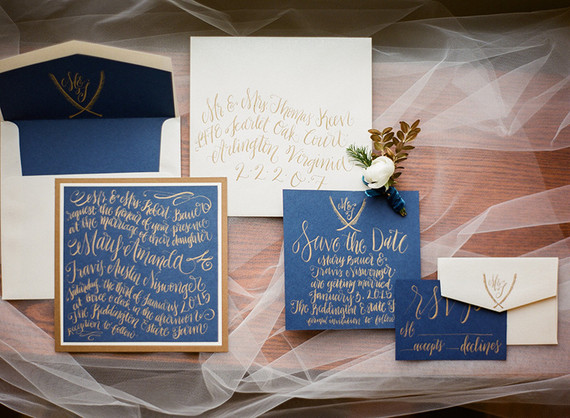 M & T
Mr & Mrs Thomas
Scarlet Oak Court
Arlington, Virginia
22207
Mr. & Mrs. Robert Bauer
request the honour of your presence
at the marriage of their daughter
Mary Amanda
to
Travis Austin Niswonger
Saturday, the third of January 2015
at three o'clock in the afternoon
The Riddington Estate Farm
reception to follow
M & T
Save the Date
Mary Bauer &
Travis Niswonger
are getting married
January 3, 2015
The Riddington Estate
formal invitation to follow
rsvp
M
accepts declines